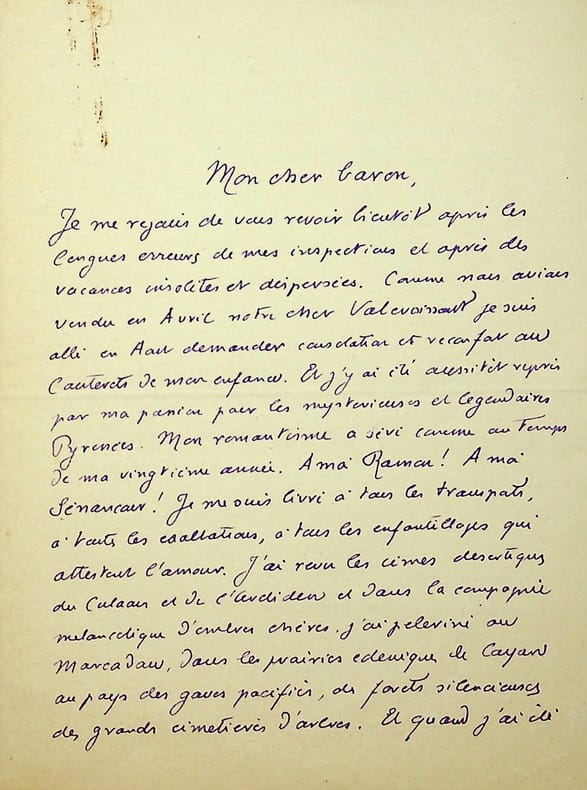 Mon cher baron,
Je me rejouis de vous revoir bientôt après les
longues erreurs de mes inspections et après des
vacances insolites et dispersées. Comme nous avions
vendu en Avril notre cher Valcroissant je suis
allé en Aout demander consolation et reconfort au
Cauterets de mon enfance. Et j'y ai été aussitôt repris
par ma passion pour les mysterieuses et legendaires
Pyrenées. Mon romantisme a sévi comme au temps
de ma vingtième année. A moi Ramon! A moi
Sénancour! Je me suis livré à tous les transports,
à toutes les exaltations, à tous les enfantillages qui
attestent l'amour. J'ai revu les cimes desertiques
du Culaus et de l'Ardiden et dans la compagnie
melancolique d'ombres chères, j'ai peleriné au
Marcadau, dans les prairies edeniques de Cayan
au pays des gaves pacifiés, des forêts silencieuses
des grands cimetières d'arbres. Et quand j'ai été